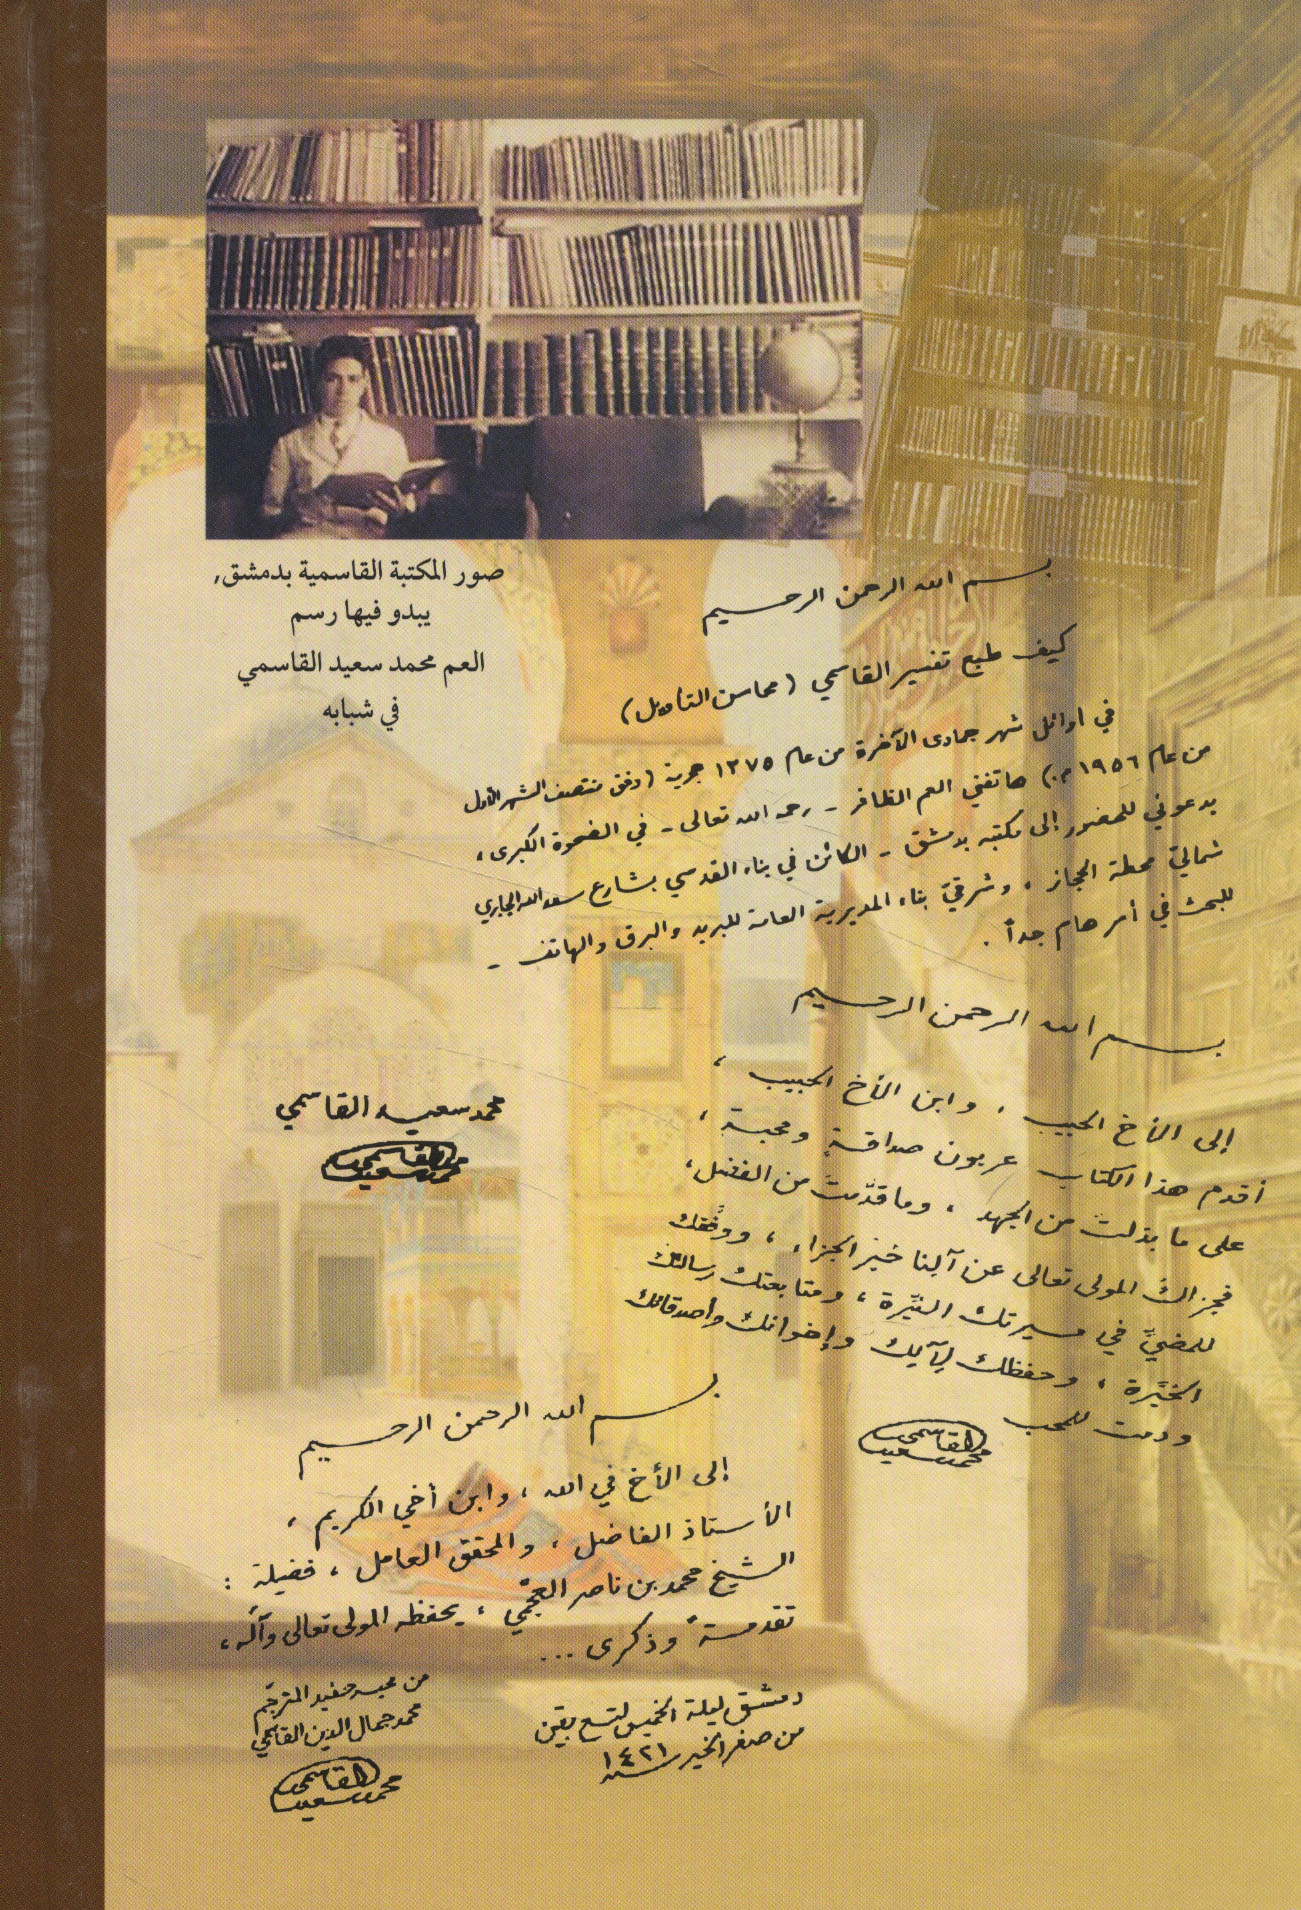 صور المكتبة القاسمية بدمشق,
يبدو فيها رسم
العم محمد سعيد القاسمي
في شبابه
بسم الله الرحمن الرحيم
كيف طبع تفسير القاسمي (محاسن التأويل)
في اوائل شهر جمادى الآخرة من عام ١٣٧٥ هجرية (وفق منتصف الشهر الأول
من عام ١٩٥٦ م.) هاتفني العم الظافر - رحمه الله تعالى - في الضحوة الكبرى،
يدعوني للحضور إلى مكتبه بدمشق - الكائن في بناء القدسي بشارع سعد الله الجابري
شمالي محطة الحجاز، وشرقيّ بناء المديرية العامة للبريد والبرق والهاتف -
للبحث في أمر هام جداً.
بسم الله الرحمن الرحيم
إلى الأخ الحبيب، وابن الأخ الحبيب،
أقدم هذا الكتاب عربون صداقةٍ ومحبةٍ،
على ما بذلتَ من الجهد، وما قدَّمتَ من الفضل،
فجزاك المولى تعالى عن آلِنا خيرَ الجزاء، ووفَّقك
للمضيِّ في مسيرتك النيِّرة، ومتابعتك رسالتك
الخيِّرة، وحفظك لِآلِك وإخوانك وأصدقائك
ودمت للمحب
محمد سعيد القاسمي
محمد سعيد القاسمي
محمد سعيد القاسمي
بسم الله الرحمن الرحيم
إلى الأخ في الله، وابن أخي الكريم،
الأستاذ الفاضل، والمحقق العامل، فضيلة:
الشيخ محمد بن ناصر العَجْمي، يحفظه المولى تعالى وآلَه،
تقدمةً وذكرى ...
دمشق ليلة الخميس لتسع بقين
من صفر الخير سنة ١٤٢١
من محبه حفيد المترجَم
محمد جمال الدين القاسمي
محمد سعيد القاسمي